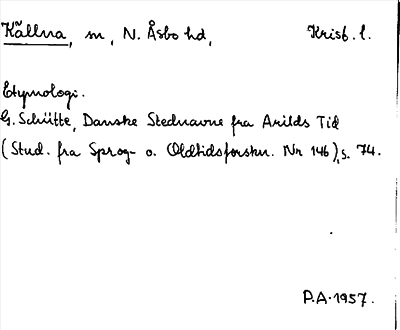 Källna, m, N. Åsbo hd, Krist. l.
Etymologi.
G. Schütte, Danske Stednavne fra Arilds Tid
(Stud. fra Sprog- o. Oldtidsforskn. Nr 146), s. 74.
P.A. 1957.